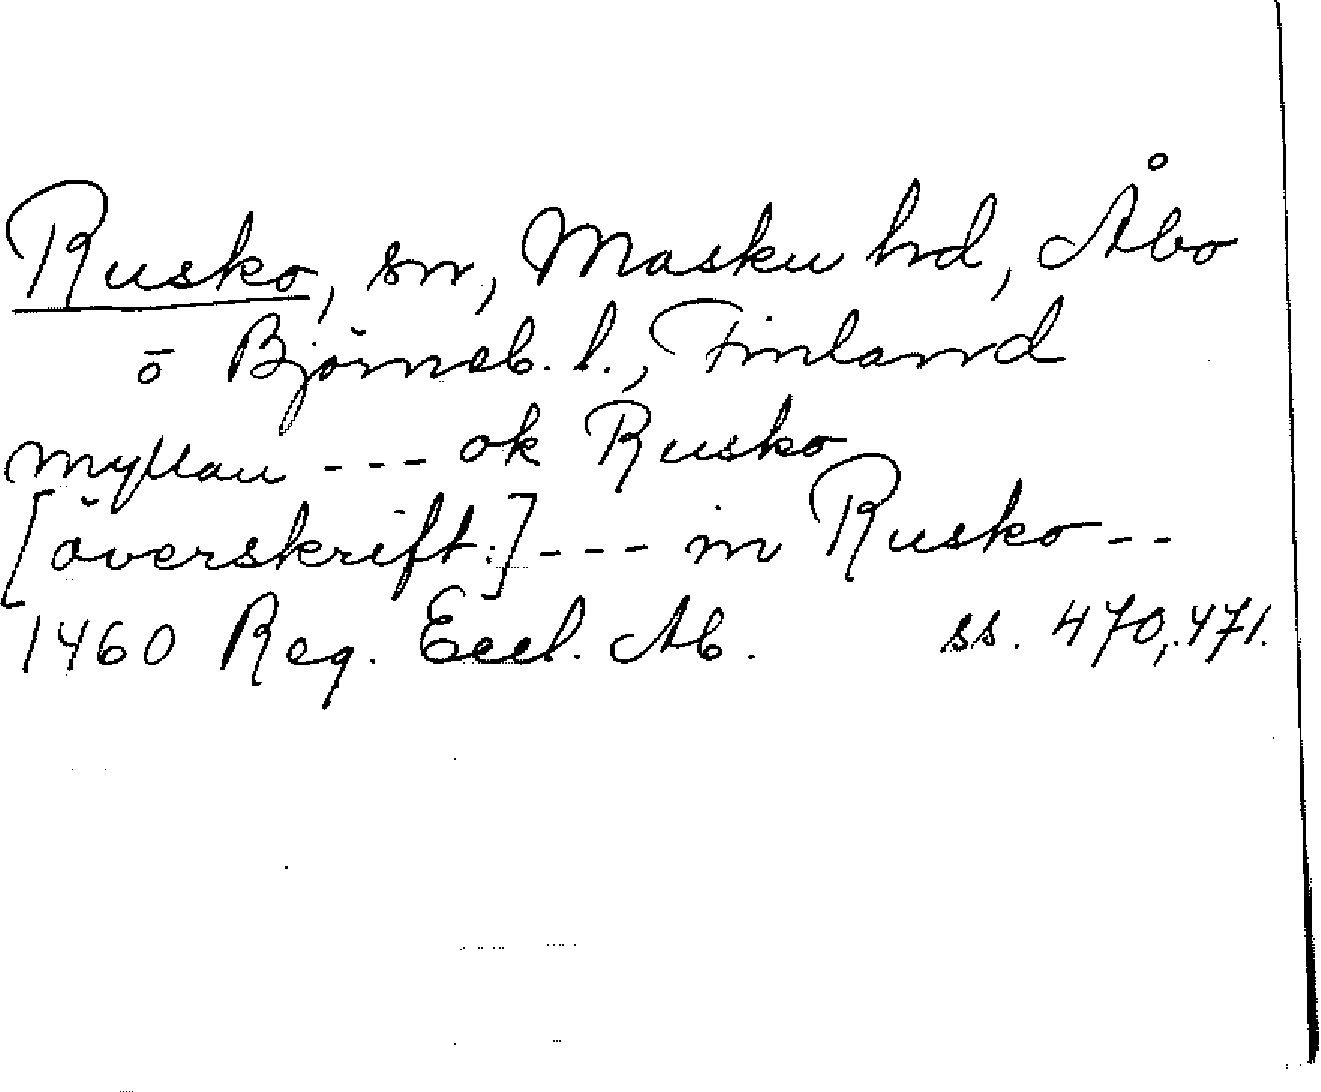 Rusko, sn, Masku hd, Åbo
o Björneb. l., Finland
Myllau --- ok Rusko
[överskrift:] --- in Rusko --
1460 Reg. Eccl. Ab. ss. 470, 471.